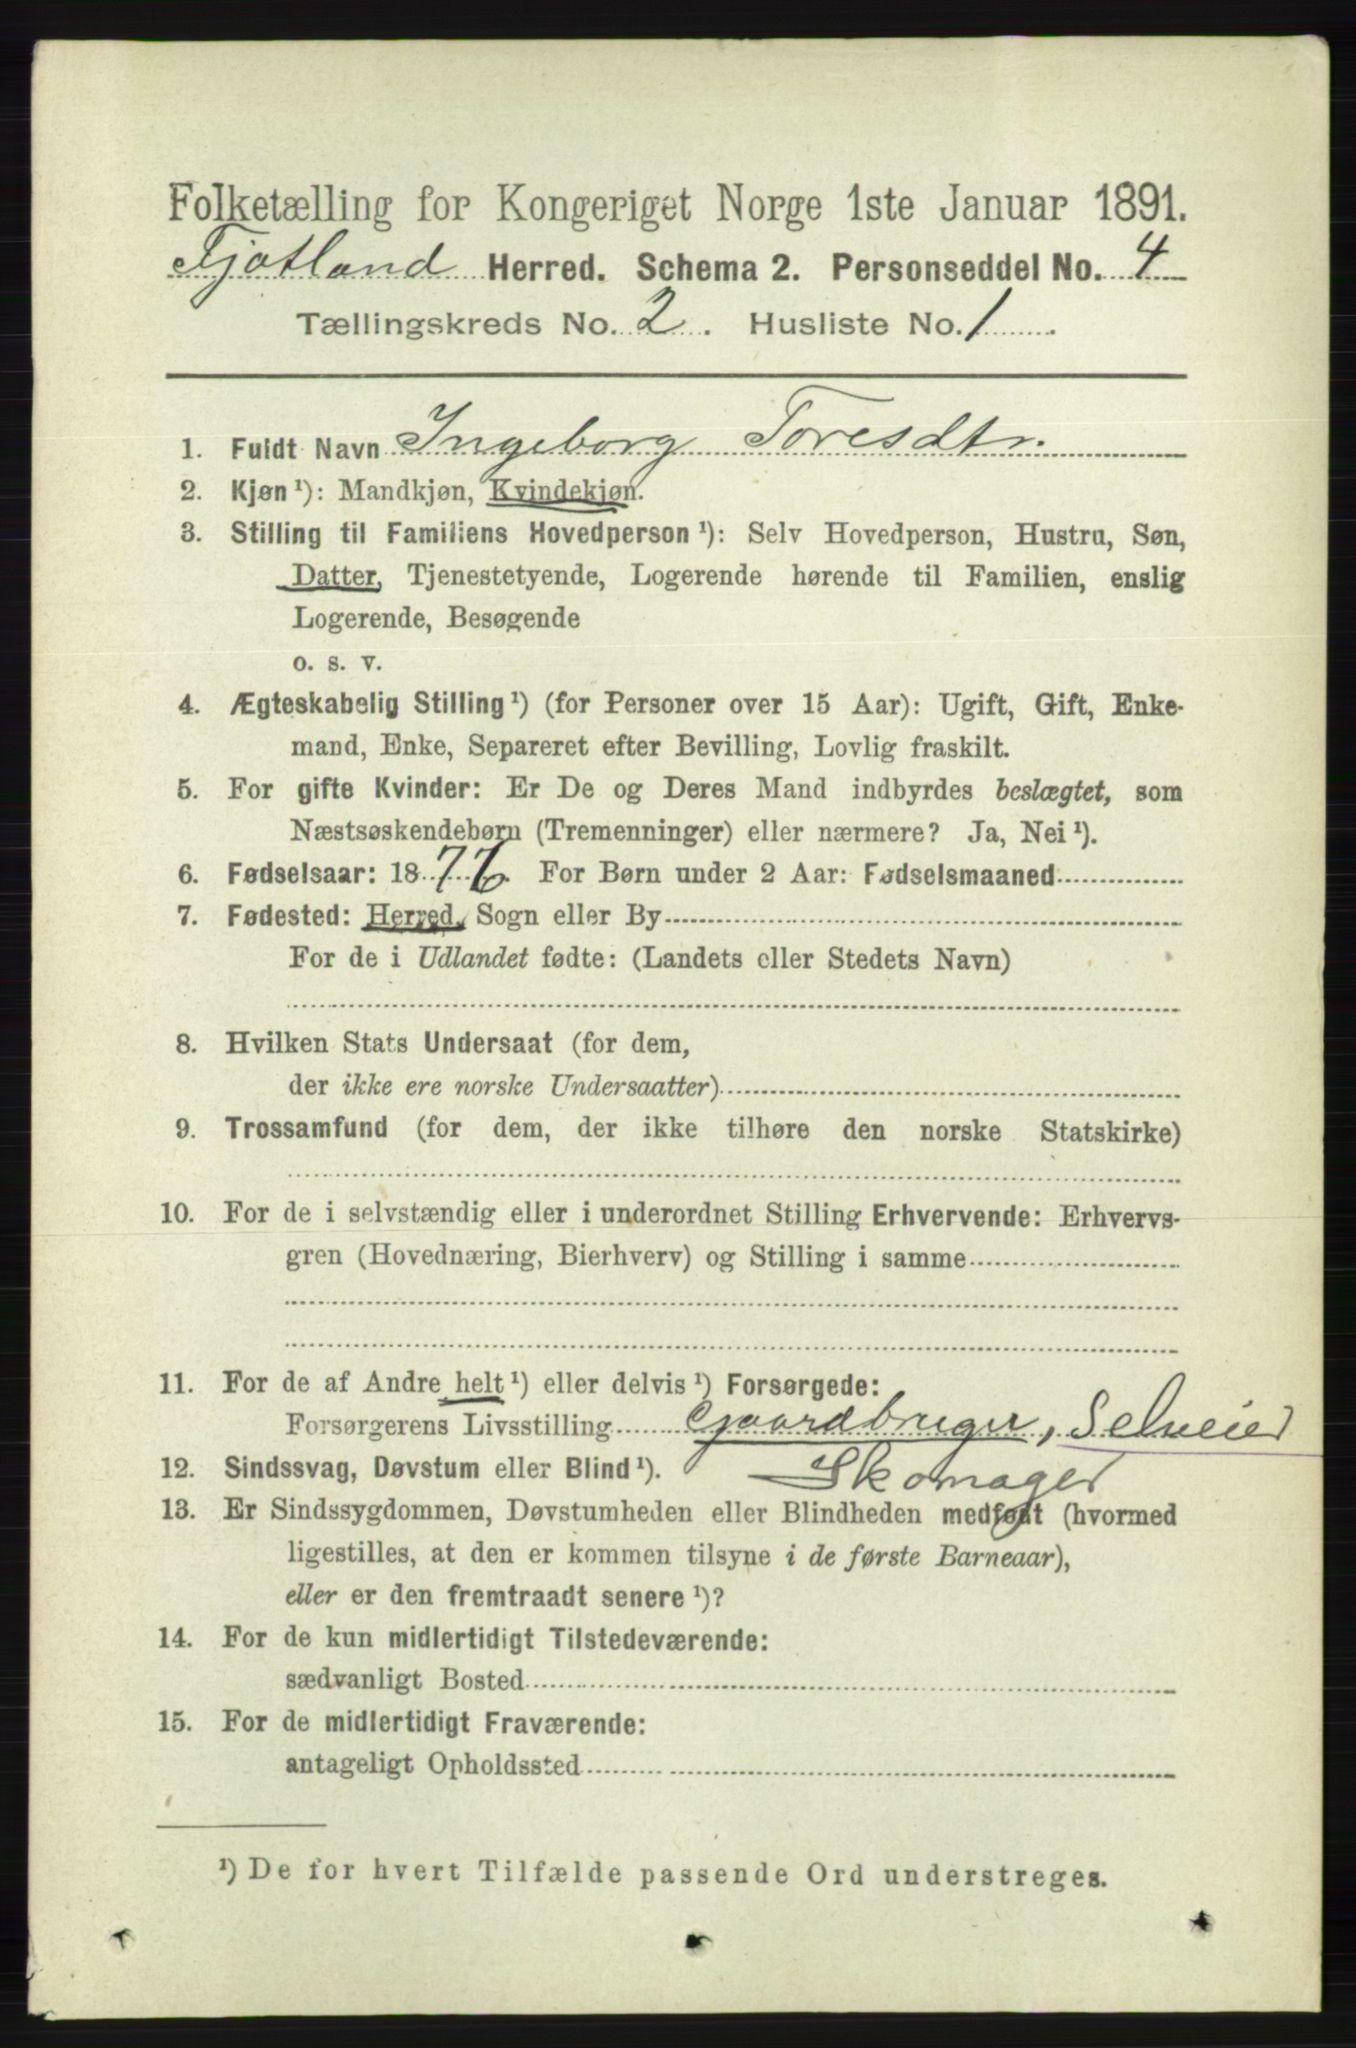 Folketælling for Kongeriget Norge 1ste Januar 1891.
Fjotland Herred. Schema 2. Personseddel No. 4
Tællingskreds No. 2. Husliste No. 1.
1. Fuldt Navn Ingeborg Toresdtr.
2. Kjøn ¹): Mandkjøn, Kvindekjøn.
3. Stilling til Familiens Hovedperson ¹): Selv Hovedperson, Hustru, Søn,
Datter, Tjenestetyende, Logerende hørende til Familien, enslig
Logerende, Besøgende
o. s. v.
4. Ægteskabelig Stilling ¹) (for Personer over 15 Aar): Ugift, Gift, Enke-
mand, Enke, Separeret efter Bevilling, Lovlig fraskilt.
5. For gifte Kvinder: Er De og Deres Mand indbyrdes beslægtet, som
Næstsøskendebørn (Tremenninger) eller nærmere? Ja, Nei ¹).
6. Fødselsaar: 1876. For Børn under 2 Aar: Fødselsmaaned
7. Fødested: Herred, Sogn eller By
For de i Udlandet fødte: (Landets eller Stedets Navn)
8. Hvilken Stats Undersaat (for dem,
der ikke ere norske Undersaatter)
9. Trossamfund (for dem, der ikke tilhøre den norske Statskirke)
10. For de i selvstændig eller i underordnet Stilling Erhvervende: Erhvervs-
gren (Hovednæring, Bierhverv) og Stilling i samme
11. For de af Andre helt ¹) eller delvis ¹) Forsørgede:
Forsørgerens Livsstilling Gaardbruger, Selveier
12. Sindssvag, Døvstum eller Blind ¹). Skomager
13. Er Sindssygdommen, Døvstumheden eller Blindheden medfødt (hvormed
ligestilles, at den er kommen tilsyne i de første Barneaar),
eller er den fremtraadt senere ¹)?
14. For de kun midlertidigt Tilstedeværende:
sædvanligt Bosted
15. For de midlertidigt Fraværende:
antageligt Opholdssted
¹) De for hvert Tilfælde passende Ord understreges.